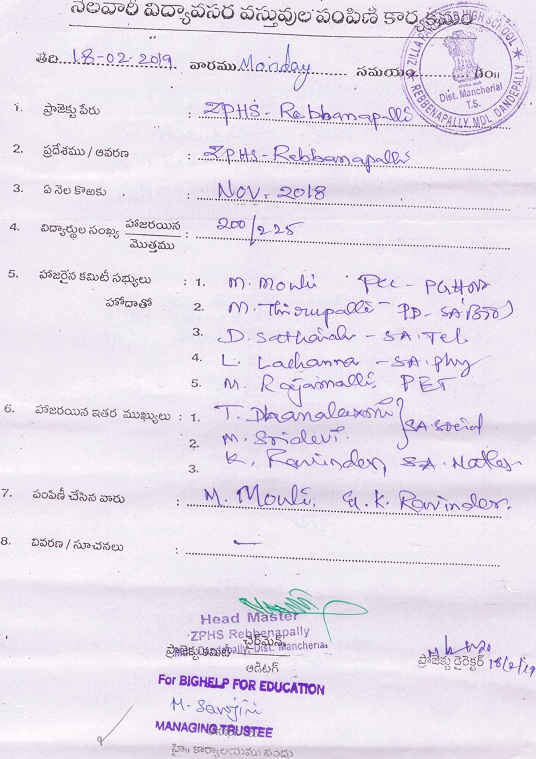 నెలవారీ విద్యావసర వస్తువుల పంపిణి కార్యక్రమం
తేది 18-02-2019 వారము Monday సమయం గం॥
ZILLA HIGH SCHOOL ★ REBBENAPALLY, MDL DANDEPALLY ★
Dist. Mancherial
T.S.
1. ప్రాజెక్టు పేరు : ZPHS - Rebbanapalli
2. ప్రదేశము / ఆవరణ : ZPHS - Rebbanapalli
3. ఏ నెల కొఱకు : Nov. 2018
4. విద్యార్థుల సంఖ్య హాజరయిన : 200/225
మొత్తము
5. హాజరైన కమిటీ సభ్యులు : 1. M. Mouli
హోదాతో 2. M. Thirupalli - PD-
3. D. Sathaiah - SA. Tel
4. L. Lachanna - SA. Phy
5. M. Rajamalli PET
6. హాజరయిన ఇతర ముఖ్యులు : 1. T. Dhanalaxmi
SA Social
2. M. Sridevi.
3. K. Ravinder, SA. Maths
7. పంపిణీ చేసిన వారు : M. Mouli, K. Ravinder.
8. వివరణ / సూచనలు : —
Head Master
ZPHS Rebbenapally
Dist. Mancherial
ప్రాజెక్టు కమిటీ చైర్మెన్
ఆడిటర్
ప్రాజెక్టు డైరెక్టర్ 18/2/19
For BIGHELP FOR EDUCATION
M. Sarojini
MANAGING TRUSTEE
కార్యాలయము నందు